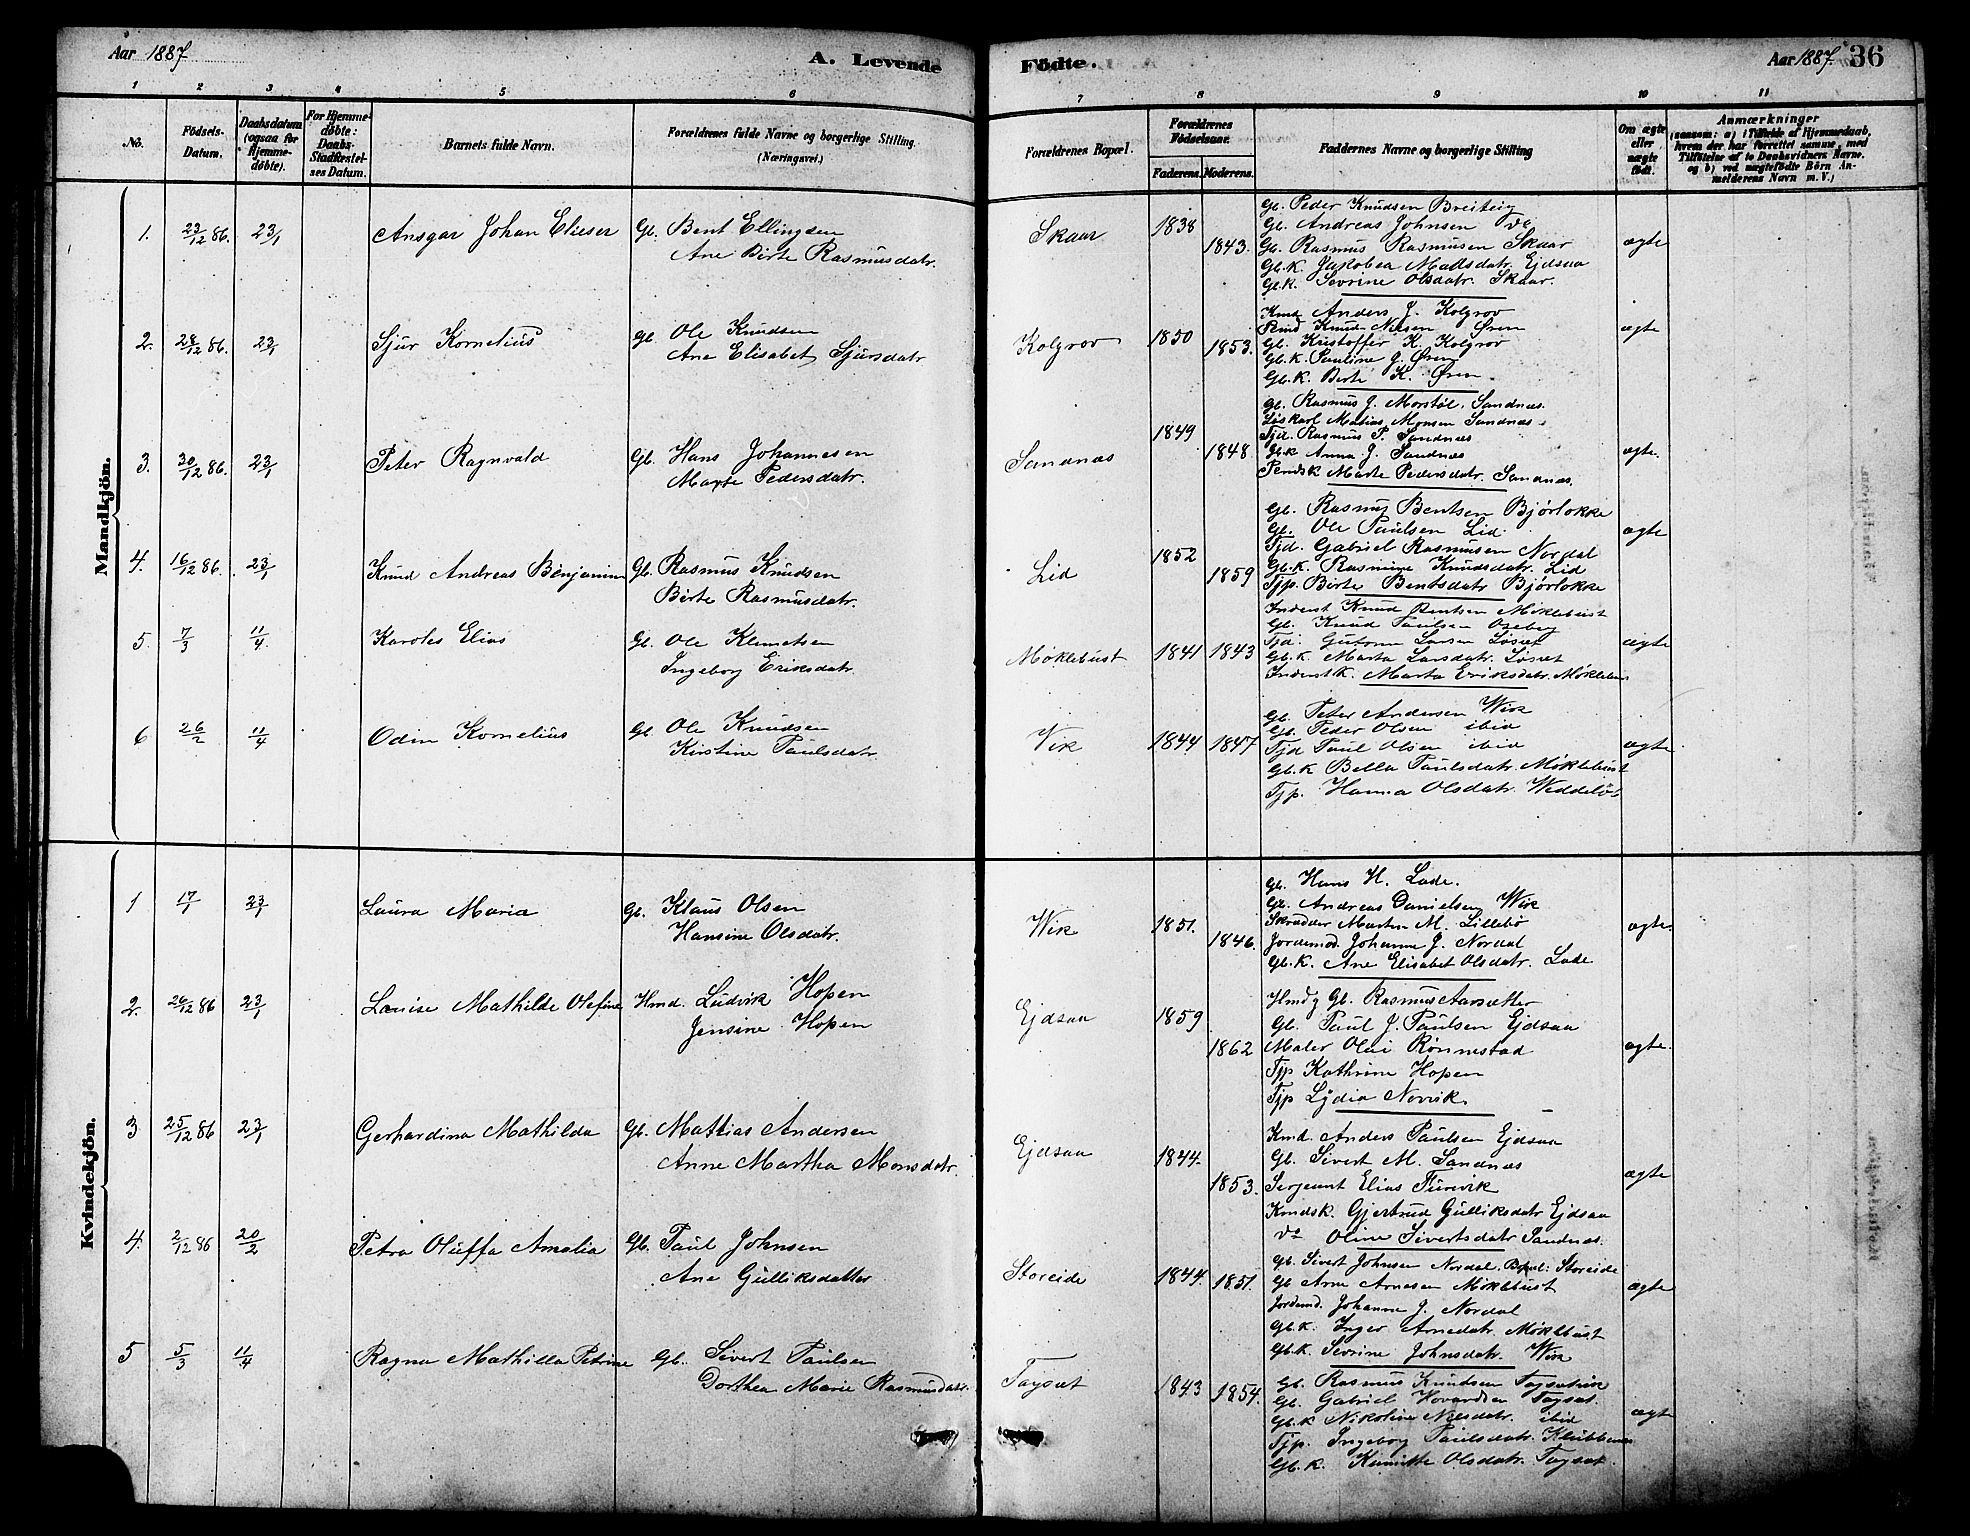 Aar 1887 A. Levende Födte. Aar 1887. 36
1 2 3 4 5 6 7 8 9 10 11
No. Födsels-Datum. Daabsdatum (ogsaa for Hjemmedöbte). For Hjemmedöbte: Daabs-Stadfæstelses Datum. Barnets fulde Navn. Forældrenes fulde Navne og borgerlige Stilling. (Næringsvei.) Forældrenes Bopæl. Forældrenes Fødselsaar. Faderens. Moderens. Faddernes Navne og borgerlige Stilling Om ægte eller uægte födt. Anmærkninger (saasom: a) i Tilfælde af Hjemmedaab, hvem der har forrettet samme, med Tilföielse af to Daabsvidners Navne, og b) ved uægtefödte Börn Anmelderens Navn m. V.)
Mandkjön.
1. 23/12 86. 23/1 Ansgar Johan Elieser Gb. Bent Ellingsen
Ane Birte Rasmusdatr.
Skaar 1838 1843. ægte
Gb. Peder Knudsen Breiteig
Gb. Andreas Johnsen do
Gb. Rasmus Rasmusen Skaar
Gb.K. Jakobea Madsdatr. Ejdsaa
Gb.K. Sevrine Olsdatr. Skaar.
2. 28/12 86. 23/1 Sjur Kornelius Gb. Ole Knudsen
Ane Elisabet Sjursdatr
Kolgrov 1850 1853. ægte
Kmd Anders J. Kolgrov
Knud Nilsen Øren
Gb. Kristoffer K. Kolgrov
Gb.K. Pauline J. Øren
Gb.K. Berte K. Øren
3. 30/12 86. 23/1 Peter Ragnvald Gb. Hans Johannesen
Marte Pedersdatr.
Sandnæs 1849 1848 ægte.
Gb. Rasmus J. Morstøl. Sandnæs.
Løskarl Matias Monsen Sandnæs.
Tjd. Rasmus P. Sandnæs
Gb.K Anna J. Sandnæs
Marte Pedersdatr. Sandnæs.
4. 16/12 86. 23/1 Knud Andreas Benjamin Gb. Rasmus Knudsen
Birte Rasmusdatr.
Lid 1852 1859 ægte
Gb. Rasmus Bentsen Bjørlokke
Gb. Ole Paulsen Lid
Tjd. Gabriel Rasmusen Nordal
Gb.K. Rasmine Knudsdatr. Lid
Tjp. Birte Bentsdatr Bjørlokke
5. 7/3 11/4. Karoles Elias Gb. Ole Klemetsen
Ingeborg Eriksdatr.
Møklebust 1841 1843 ægte
Inderst Knud Bentsen Møklebust
Gb. Knud Paulsen Oseberg
Tjd. Guttorm Larsen Løset
Gb.K. Marta Larsdatr. Løset
Inderst K. Marta Eriksdatr. Møklebus
6 26/2 11/4 Odin Kornelius Gb Ole Knudsen
Kirstine Paulsdatr
Vik 1844 1847 ægte
Gb. Peter Andersen Wik
Gb. Peder Olsen ibid
Tjd Paul Olsen ibid
Gb.K Bella Paulsdatr. Møklebust
Tjp. Hanna Olsdatr. Weddeløb
Kvindekjön.
1 17/1 23/1 Laura Maria Gb. Klaus Olsen
Hansine Olsdatr.
Wik 1851. 1846. ægte.
Gb. Hans H. Lade.
Gb. Andreas Danielsen Wik
Skrædder Morten M. Lillebø
Jordemd. Johanne J. Nordal
Gb.K. Ane Elisabet Olsdatr. Lade
2. 26/12 86 23/1 Louise Mathilde Olefine Hmd. Ludvik Hopen
Jensine Hopen
Ejdsaa 1859 1862 ægte.
Hmd g Gb. Rasmus Aarsætter
Gb. Paul J. Paulsen Ejdsaa
Maler Olai Rønnestad
Tjp Kathrine Hopen
Tjp Lydia Norvik.
3 25/12 86 23/1 Gerhardina Mathilda Gb. Mathias Andersen
Anne Martha Monsdatr.
Ejdsaa 1844. 1853. ægte
Kmd. Anders Paulsen Ejdsaa
Gb. Sivert M. Sandnæs
Sergeant Elias Furevik
Kmdsk. Gjertrud Gulliksdatr Ejdsaa
do Oline Sivertsdatr Sandnæs.
4. 2/12 86 20/2 Petra Oluffa Amalia Gb. Paul Johnsen
Ane Gulliksdatter
Storeide 1844. 1851. ægte
Gb. Sivert Johnsen Nordal, Bopæl: Storeide
Gb Arne Arnesen Møklebust
Jordemd. Johanne J. Nordal
Gb.K. Inger Arnedatr. Møklebust
Gb.K Sevrine Johnsdatr. Wik
5 5/3 11/4 Ragna Mathilla Petrine Gb. Sivert Paulsen
Dorthea Marie Rasmusdatr.
Tagsæt 1843 1854. ægte
Gb. Rasmus Knudsen
Gb. Gabriel Hovardsen Tagsæt.
Gb.K Nikoline Nilsdatr. ibid
Tjp. Ingeborg Paulsdatr.
Gb.K. Olsdatr. Tagsæt.